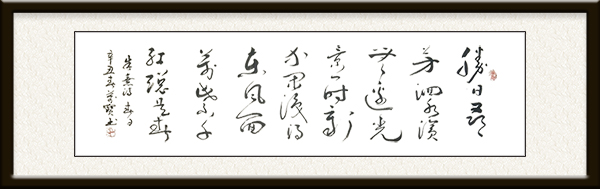 勝日尋
芳泗水濱
無邊光
景一時新
等閒識得
東風面
萬紫千
紅總是春
朱熹詩 春日
辛丑春